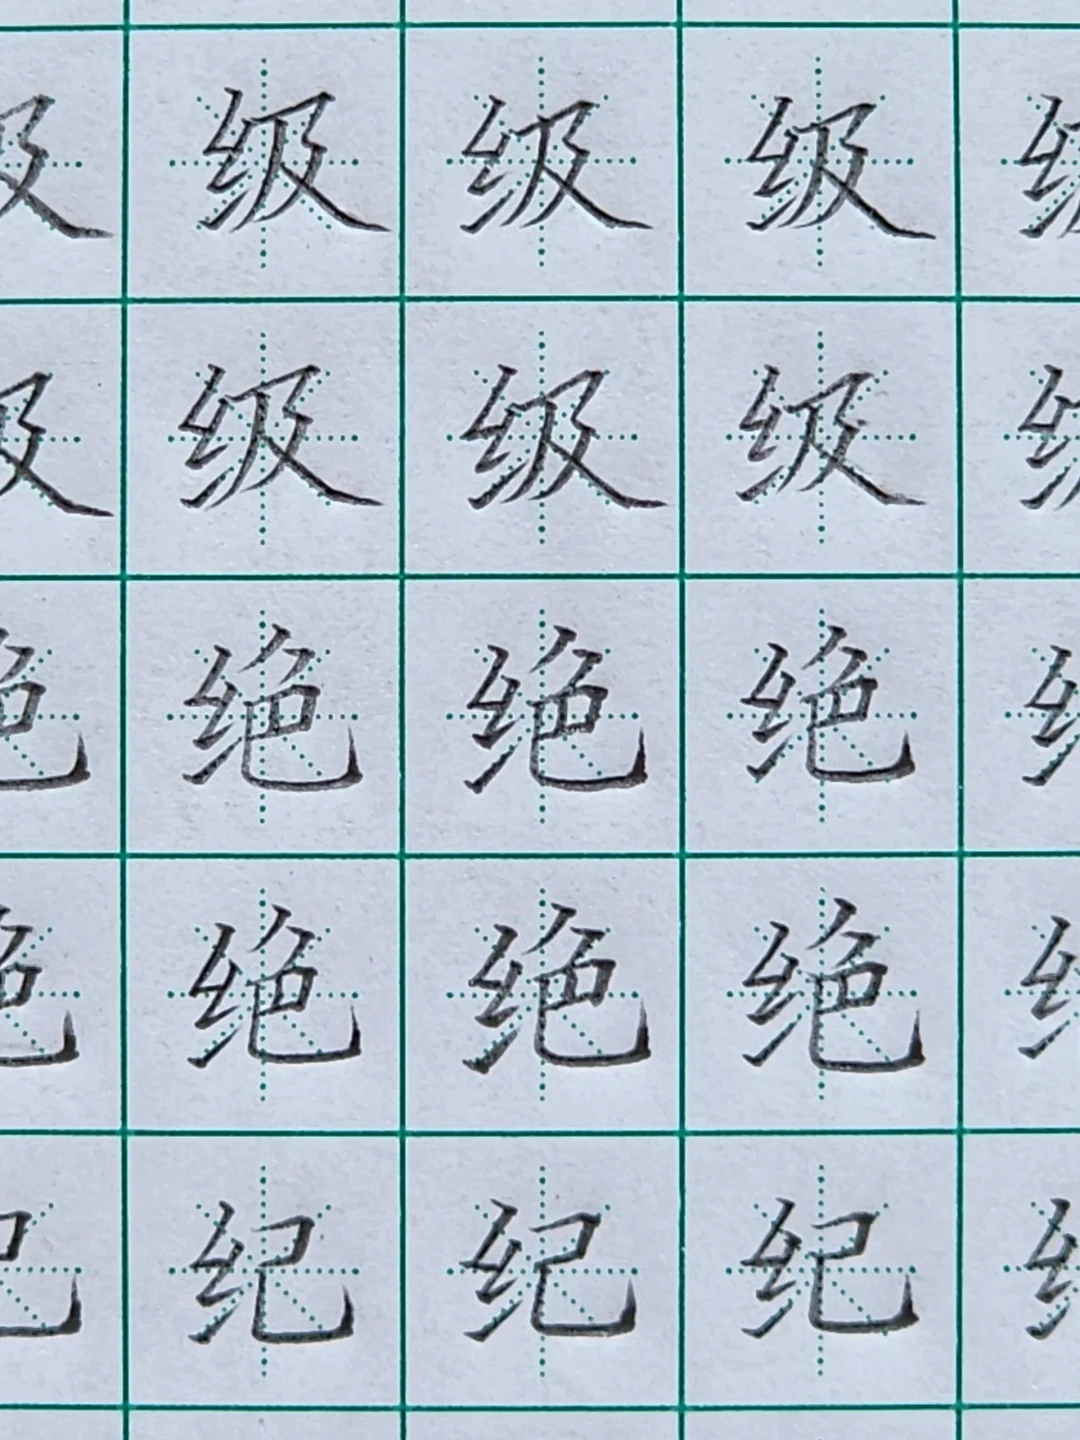 级 级 级 级 级
级 级 级 级 级
绝 绝 绝 绝 绝
绝 绝 绝 绝 绝
纪 纪 纪 纪 纪